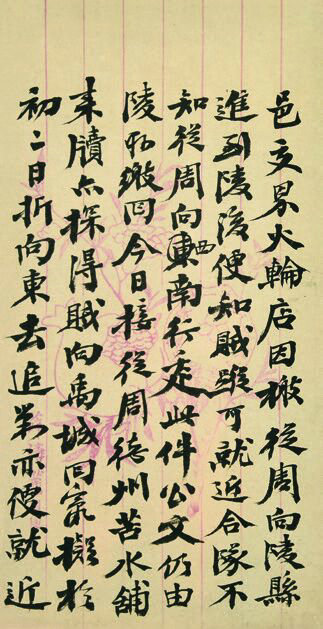 邑交界火輪店因檄從周向陵縣
進到陵後便知賊蹤可就近合隊不
知從周向東西南行走此件公文仍由
陵繳回今日接從周德州苦水舖
來牘亦探得賊向禹城回竄擬於
初二日折向東去追亦便就近